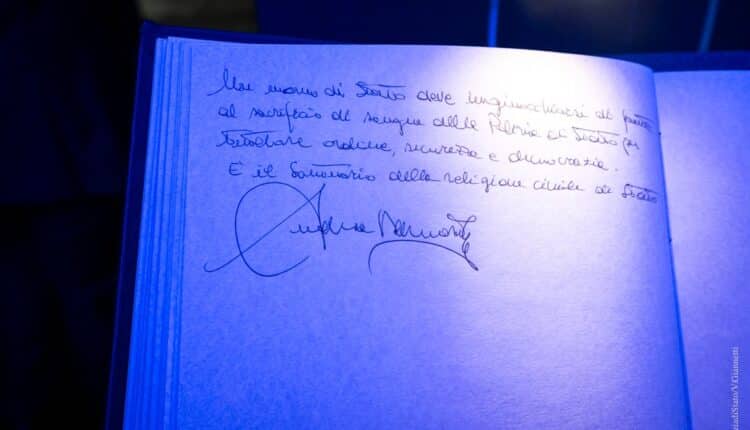 Un uomo di Stato deve inginocchiarsi di fronte
al sacrificio di sangue della Polizia di Stato per
tutelare ordine, sicurezza e democrazia.
È il Santuario della religione civile di Stato
Andrea
iadiStato/V.Giannetti